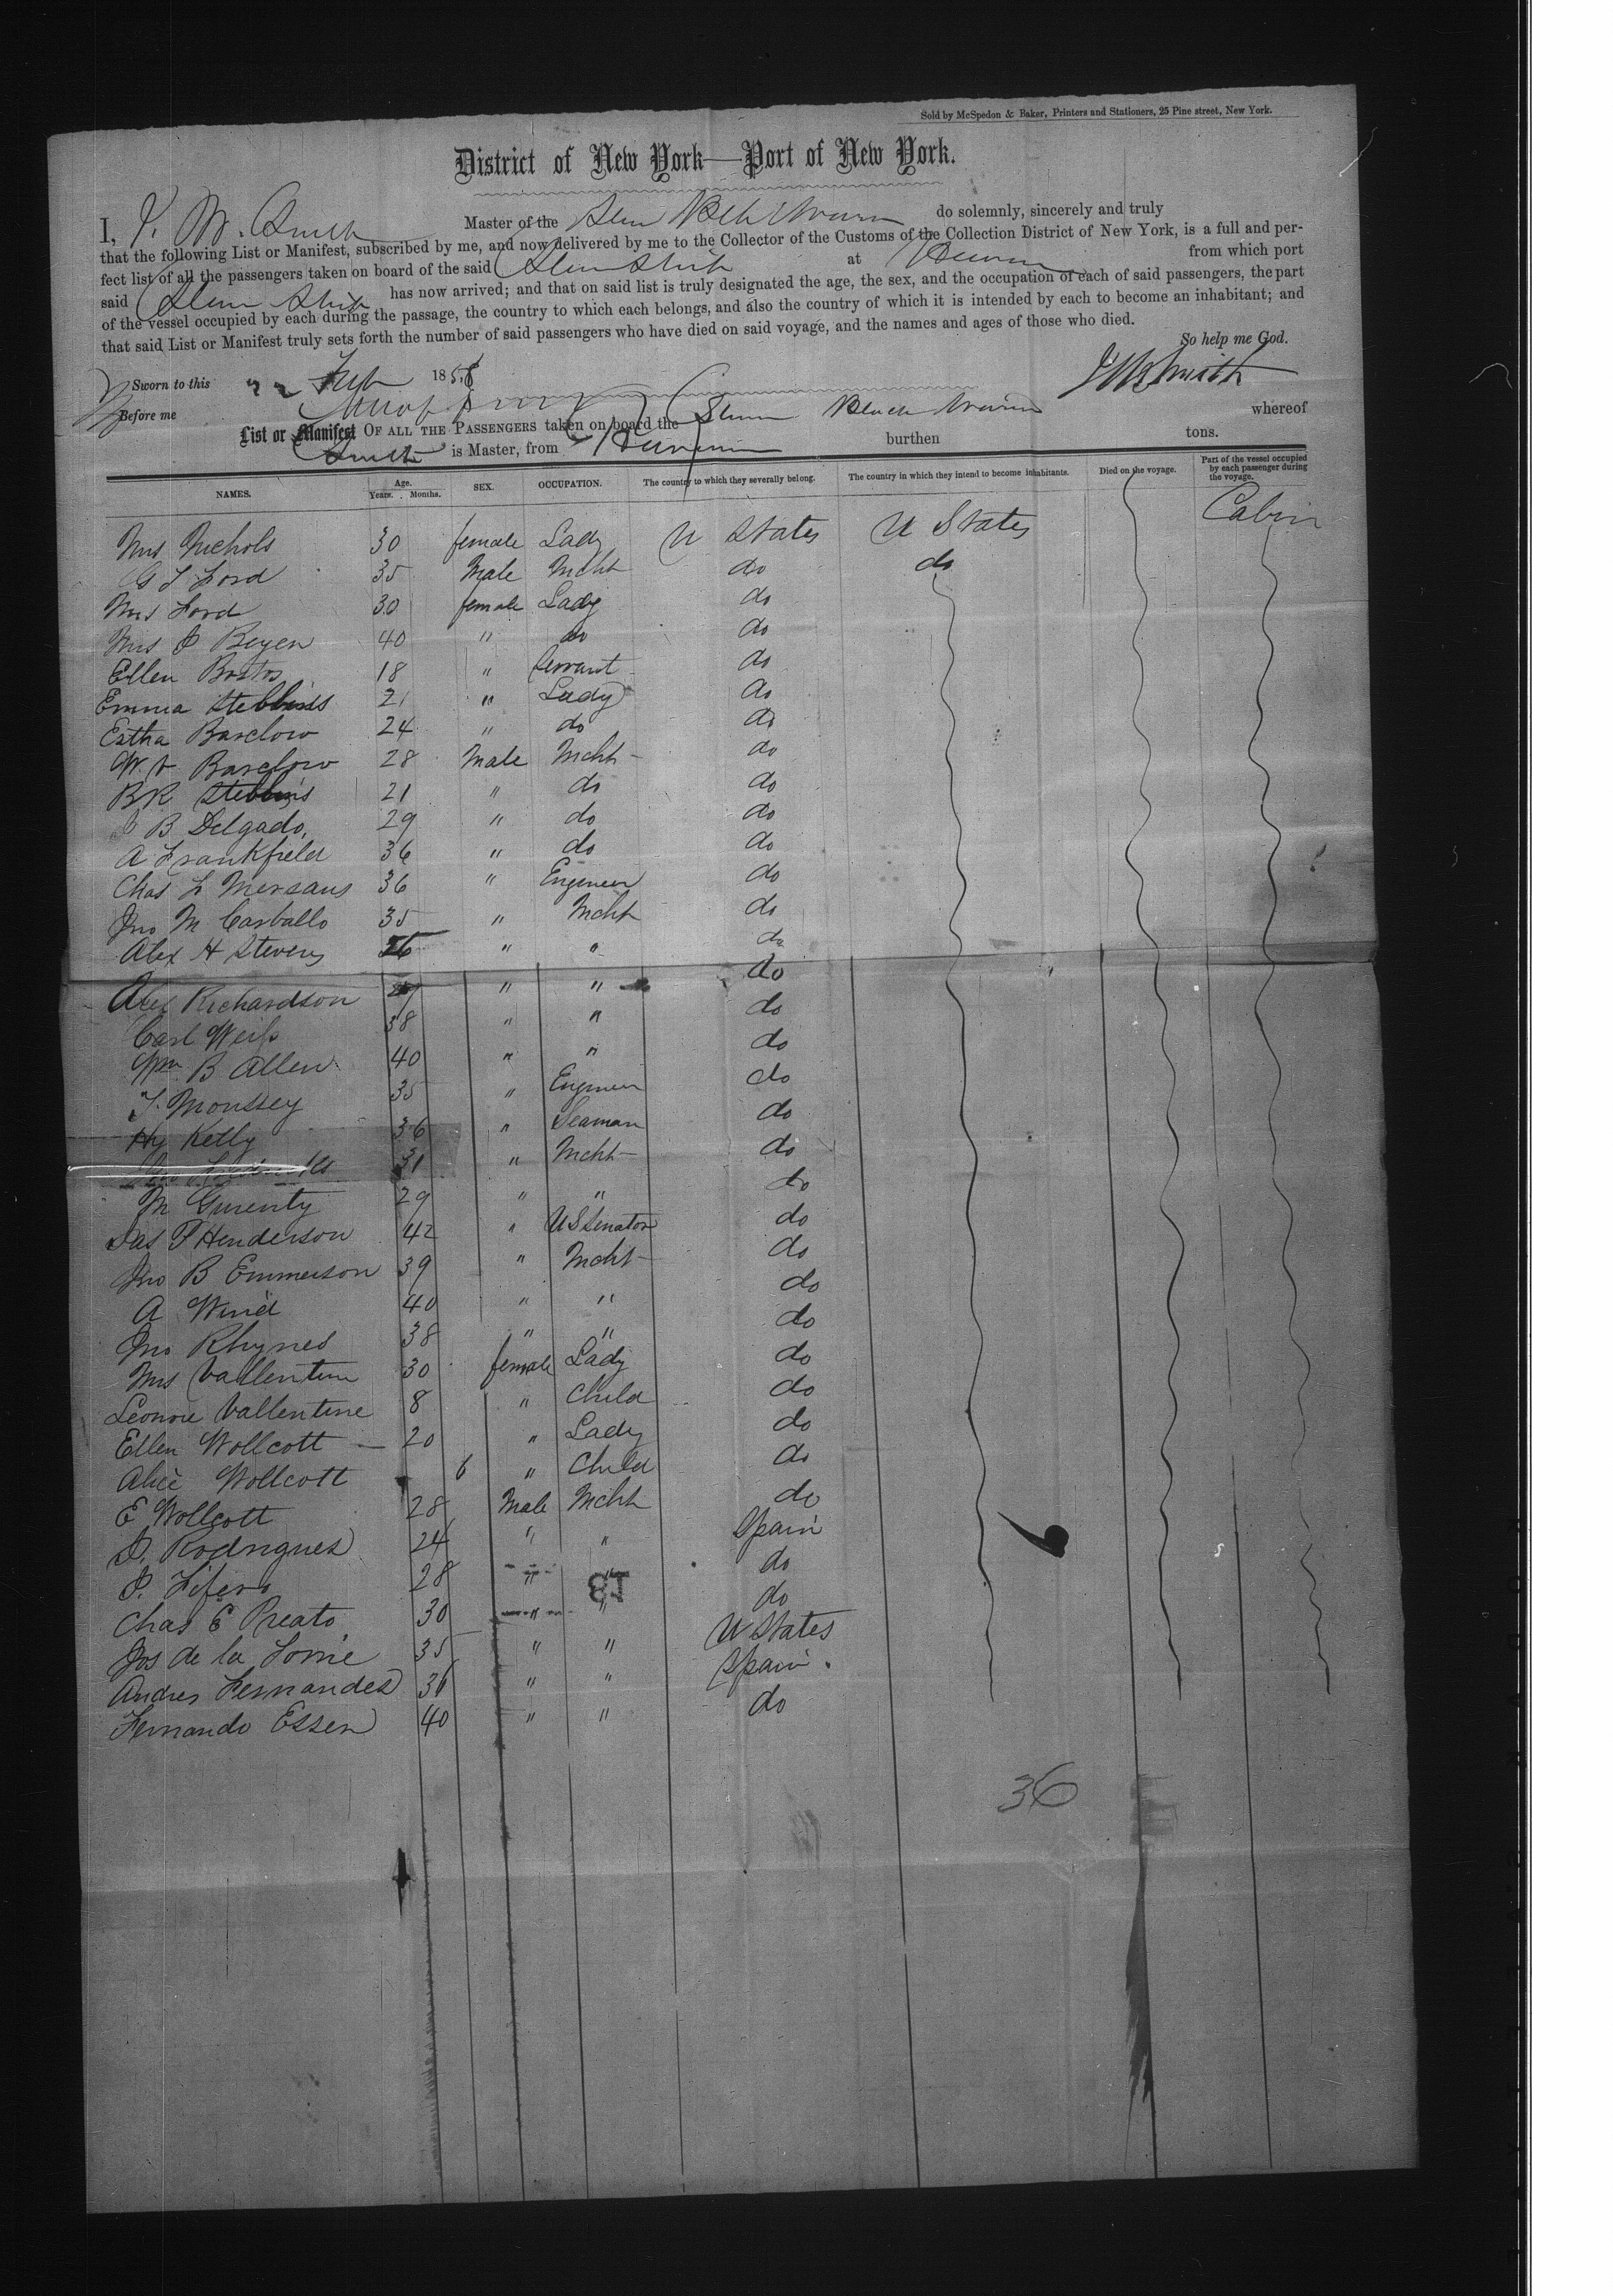 Sold by McSpedon & Baker, Printers and Stationers, 25 Pine street, New York.
District of New York—Port of New York.
I, J. W. Smith Master of the Steam do solemnly, sincerely and truly
that the following List or Manifest, subscribed by me, and now delivered by me to the Collector of the Customs of the Collection District of New York, is a full and per-
fect list of all the passengers taken on board of the said Steam Ship at from which port
said Steam Ship has now arrived; and that on said list is truly designated the age, the sex, and the occupation of each of said passengers, the part
of the vessel occupied by each during the passage, the country to which each belongs, and also the country of which it is intended by each to become an inhabitant; and
that said List or Manifest truly sets forth the number of said passengers who have died on said voyage, and the names and ages of those who died.
So help me God.
Sworn to this 22 1858 J W Smith
Before me
List or Manifest OF ALL THE PASSENGERS taken on board the Steam Black Warrior whereof
Smith is Master, from burthen tons.
NAMES. Age. Years. Months. SEX. OCCUPATION. The country to which they severally belong. The country in which they intend to become inhabitants. Died on the voyage. Part of the vessel occupied by each passenger during the voyage.
Mrs Nichols 30 female Lady U States U States Cabin
G L Lord 35 Male Mcht do do
Mrs Lord 30 female Lady do
Mrs P Beyen 40 " do do
Ellen Bostos 18 " Servant do
Emma Stebbins 21 " Lady do
Estha Barclow 24 " do do
W. V Barclow 28 Male Mcht do
B R Stebbins 21 " do do
B Delgado, 29 " do do
A Frankfield 36 " do do
Chas L Mersaus 36 " Engineer do
Jno M Carballo 35 " Mcht do
Alex H Stevens " " do
Alex Richardson " " do
Carl Weiss 38 " " do
Wm B Allen 40 " " do
J. Moussey 35 " Engineer do
Hy Kelly 36 " Seaman do
31 " Mcht do
M Gurenty 29 " " do
Jas P Henderson 42 " U S Senator do
Jno B Emmerson 39 " Mcht do
A Wind 40 " " do
Jno Rhynes 38 " " do
Mrs Vallentine 30 female Lady do
Leonore Vallentine 8 " Child do
Ellen Wollcott 20 " Lady do
Alice Wollcott 6 " Child do
E Wollcott 28 Male Mcht do
P. Rodrigues 24 " " Spain
P. Fifero 28 " " do
Chas E Preato 30 " " do
Jos de la Torrie 35 " " U States
Andres Fernandes 36 " " Spain
Fernando Essen 40 " " do
36